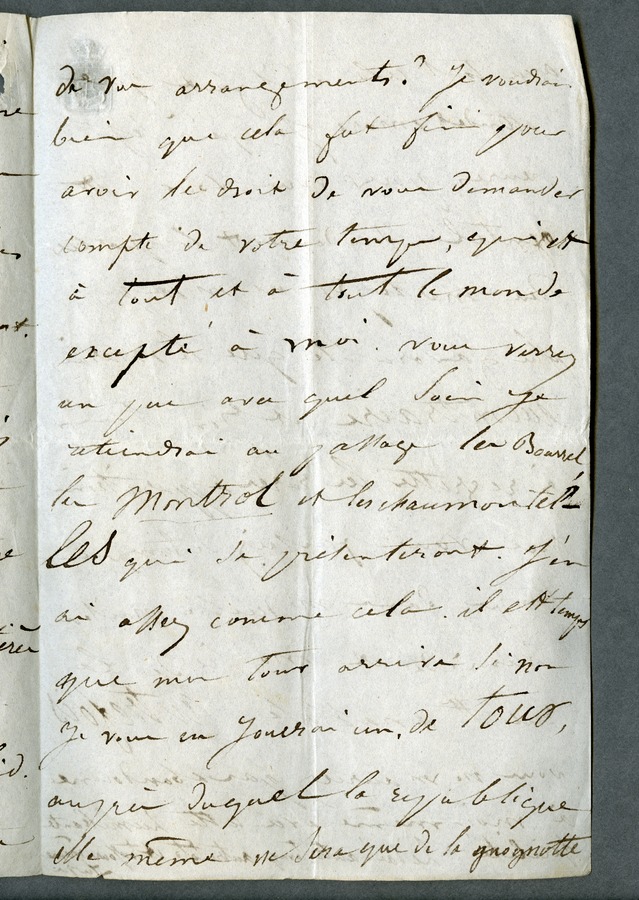 de vos arrangements? Je voudrais
bien que cela fut fini pour
avoir le droit de vous demander
compte de votre temps, qui est
à tout et à tout le monde
excepté à moi. vous verrez
un peu avec quel soin je
au passage les Bourrel
les Montrol et les chaumontel
les qui se présenteront. J'en
ai assez comme cela. il est temps
que mon tour arrive si non
je vous en jouerai un, de tour,
auprès duquel la republique
elle même ne sera que de la gnognotte